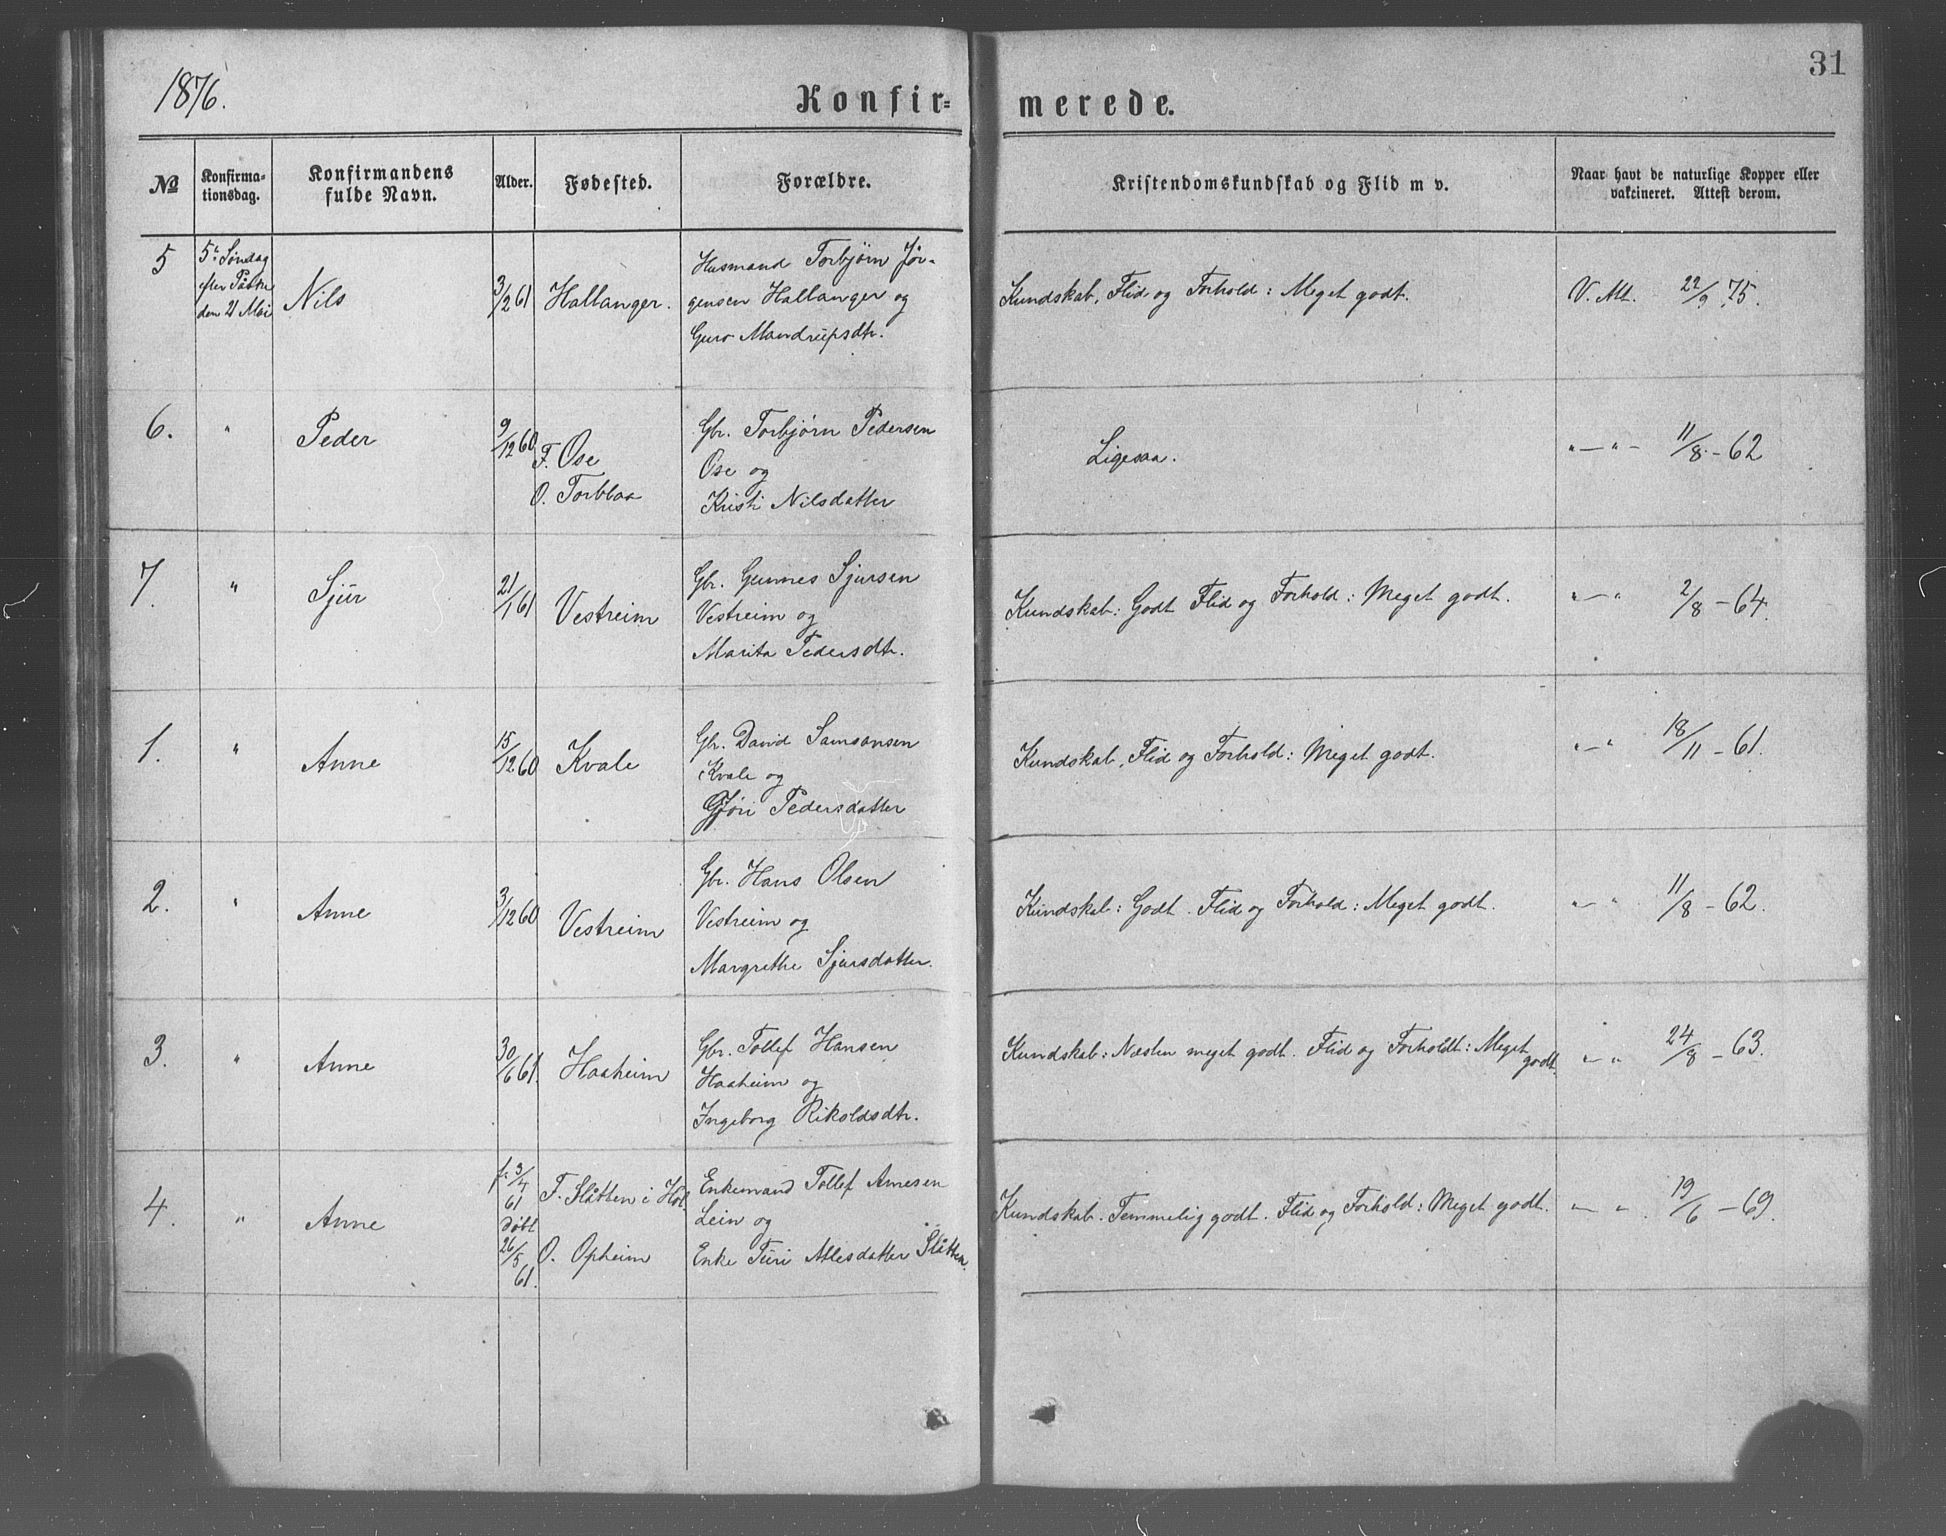 1876.
Konfir-
merede.
31
№
Konfirma-
tionsdag.
Konfirmandens
fulde Navn.
Alder.
Fødested.
Forældre.
Kristendomskundskab og Flid m v.
Naar havt de naturlige Kopper eller
vakcineret. Attest derom.
5
5te Søndag
efter Påske
den 21 Mai
Nils
3/2 61
Hallanger.
Husmand Torbjørn Jør-
gensen Hallanger og
Guro Mandrupsdtr.
Kundskab, Flid og Forhold: Meget godt.
V. Att. 22/9 75.
6.
"
Peder
9/12 60
F. Øse
O. Torblaa
Gbr. Torbjørn Pedersen
Øse og
Kristi Nilsdatter
Ligesaa.
" — " — 11/8 - 62
7.
"
Sjur
21/1 61
Vestreim
Gbr. Gunnes Sjursen
Vestreim og
Marita Pedersdtr.
Kundskab: Godt Flid og Forhold: Meget godt.
" — " 2/8 - 64.
1.
"
Anne
15/12 60
Kvale
Gbr. David Samsonsen
Kvale og
Gjøri Pedersdatter
Kundskab, Flid og Forhold: Meget godt.
" — " 18/11 - 61.
2.
"
Anne
3/12 60
Vestreim
Gbr. Hans Olsen
Vestreim og
Margrethe Sjursdatter.
Kundskab: Godt. Flid og Forhold: Meget godt.
" — " 11/8 - 62.
3.
"
Anne
30/6 61.
Haaheim
Gbr. Tollef Hansen
Haaheim og
Ingeborg Rikoldsdtr.
Kundskab: Næsten meget godt. Flid og Forholdt: Meget
godt.
" — " 24/8 - 63.
4.
"
Anne
f. 3/4
61
Døbt
26/5
61.
F. Slåtten i Hol
O. Opheim
Enkemand Tollef Arnesen
Lein og
Enke Turi Atlesdatter Slåtten.
Kundskab. Temmelig godt. Flid og Forhold: Meget godt.
" — " . 19/6 - 69.